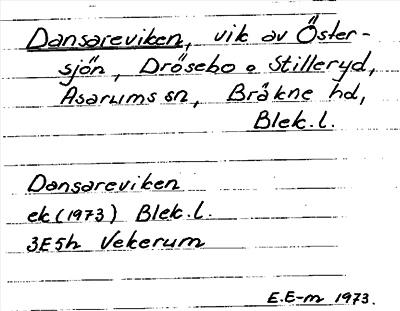 Dansareviken, vik av Öster-
sjön, Drösebo o Stilleryd,
Asarums sn, Bräkne hd,
Blek.l.
Dansareviken
ek (1973) Blek.l.
3E5h Vekerum
E.E-m 1973.